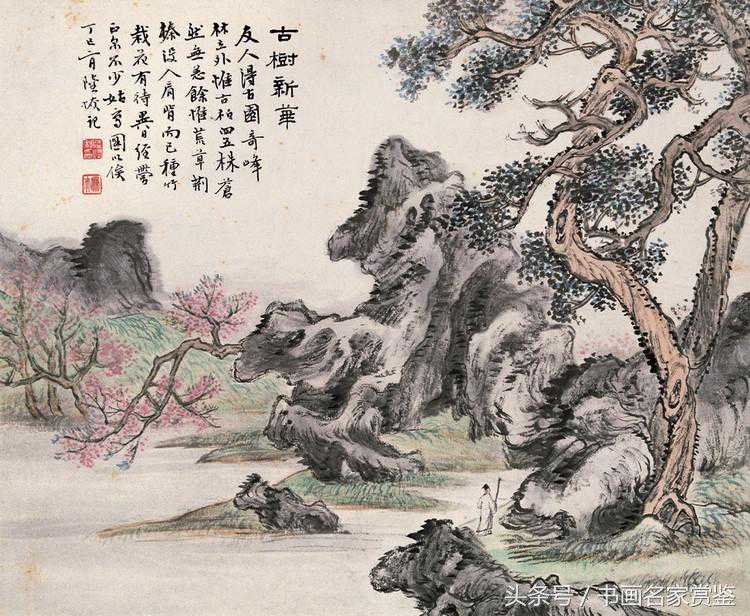 古樹新華
友人得古園奇峰
林立外惟古柏四五株蒼
然無恙餘惟荒草荆
榛没人肩背而已種竹
栽花有待異日經營
正亦不少姑寫圖以俟
丁巳 月陸恢記
头条号/书画名家赏鉴